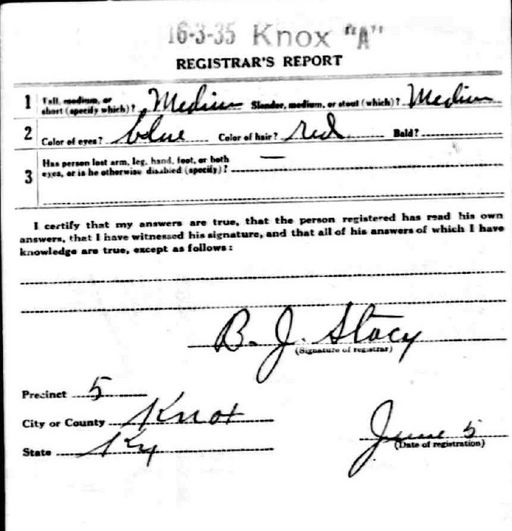 16-3-35 Knox "A"
REGISTRAR'S REPORT
1 Tall, medium, or short (specify which)? Medium Slender, medium, or stout (which)? Medium
2 Color of eyes? blue Color of hair? red Bald?
3 Has person lost arm, leg, hand, foot, or both eyes, or is he otherwise disabled (specify)? —
I certify that my answers are true, that the person registered has read his own
answers, that I have witnessed his signature, and that all of his answers of which I have
knowledge are true, except as follows:
B. J. Stacy
(Signature of registrar)
Precinct 5
City or County Knot
State Ky
June 5
(Date of registration)